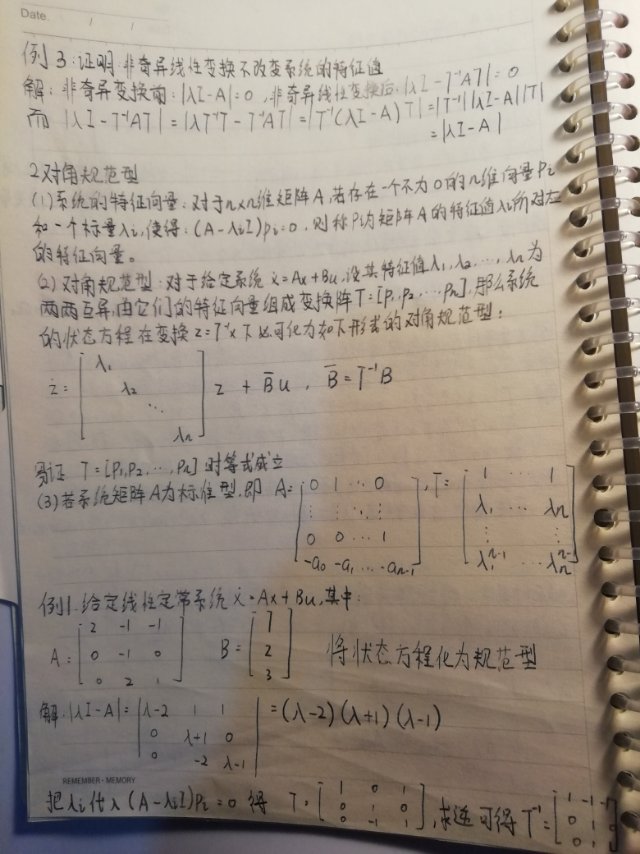 Date. / /
例3:证明:非奇异线性变换不改变系统的特征值
解:非奇异变换前:|λI-A|=0,非奇异线性变换后:|λI-T⁻¹AT|=0
而 |λI-T⁻¹AT|=|λT⁻¹T-T⁻¹AT|=|T⁻¹(λI-A)T|=|T⁻¹||λI-A||T|
=|λI-A|
2.对角规范型
(1)系统的特征向量:对于n×n维矩阵A,若存在一个不为0的n维向量Pi
和一个标量λi,使得:(A-λiI)Pi=0,则称Pi为矩阵A的特征值λi所对应
的特征向量。
(2)对角规范型:对于给定系统 ẋ=Ax+Bu,设其特征值λ1,λ2,…,λn为
两两互异,由它们的特征向量组成变换阵T=[P1,P2,…,Pn],那么系统
的状态方程在变换 z=T⁻¹x 下必可化为如下形式的对角规范型:
ż=[λ1 λ2 ⋱ λn] z + B̄u , B̄=T⁻¹B
易证 T=[P1,P2,…,Pn]时等式成立
(3)若系统矩阵A为标准型,即 A=[0 1 … 0
⋮ ⋮ ⋱ ⋮
0 0 … 1
-a0 -a1 … -an-1] , T=[1 … 1
λ1 … λn
⋮ ⋮
λ1ⁿ⁻¹ … λnⁿ⁻¹]
例1.给定线性定常系统 ẋ=Ax+Bu,其中:
A=[2 -1 -1
0 -1 0
0 2 1] B=[7
2
3] 将状态方程化为规范型
解:|λI-A|=|λ-2 1 1
0 λ+1 0
0 -2 λ-1|=(λ-2)(λ+1)(λ-1)
REMEMBER·MEMORY
把λi代入(A-λiI)Pi=0 得 T=[1 0 1
0 1 0
0 -1 1],求逆可得T⁻¹=[1 -1 -1
0 1 0
0 1 1]